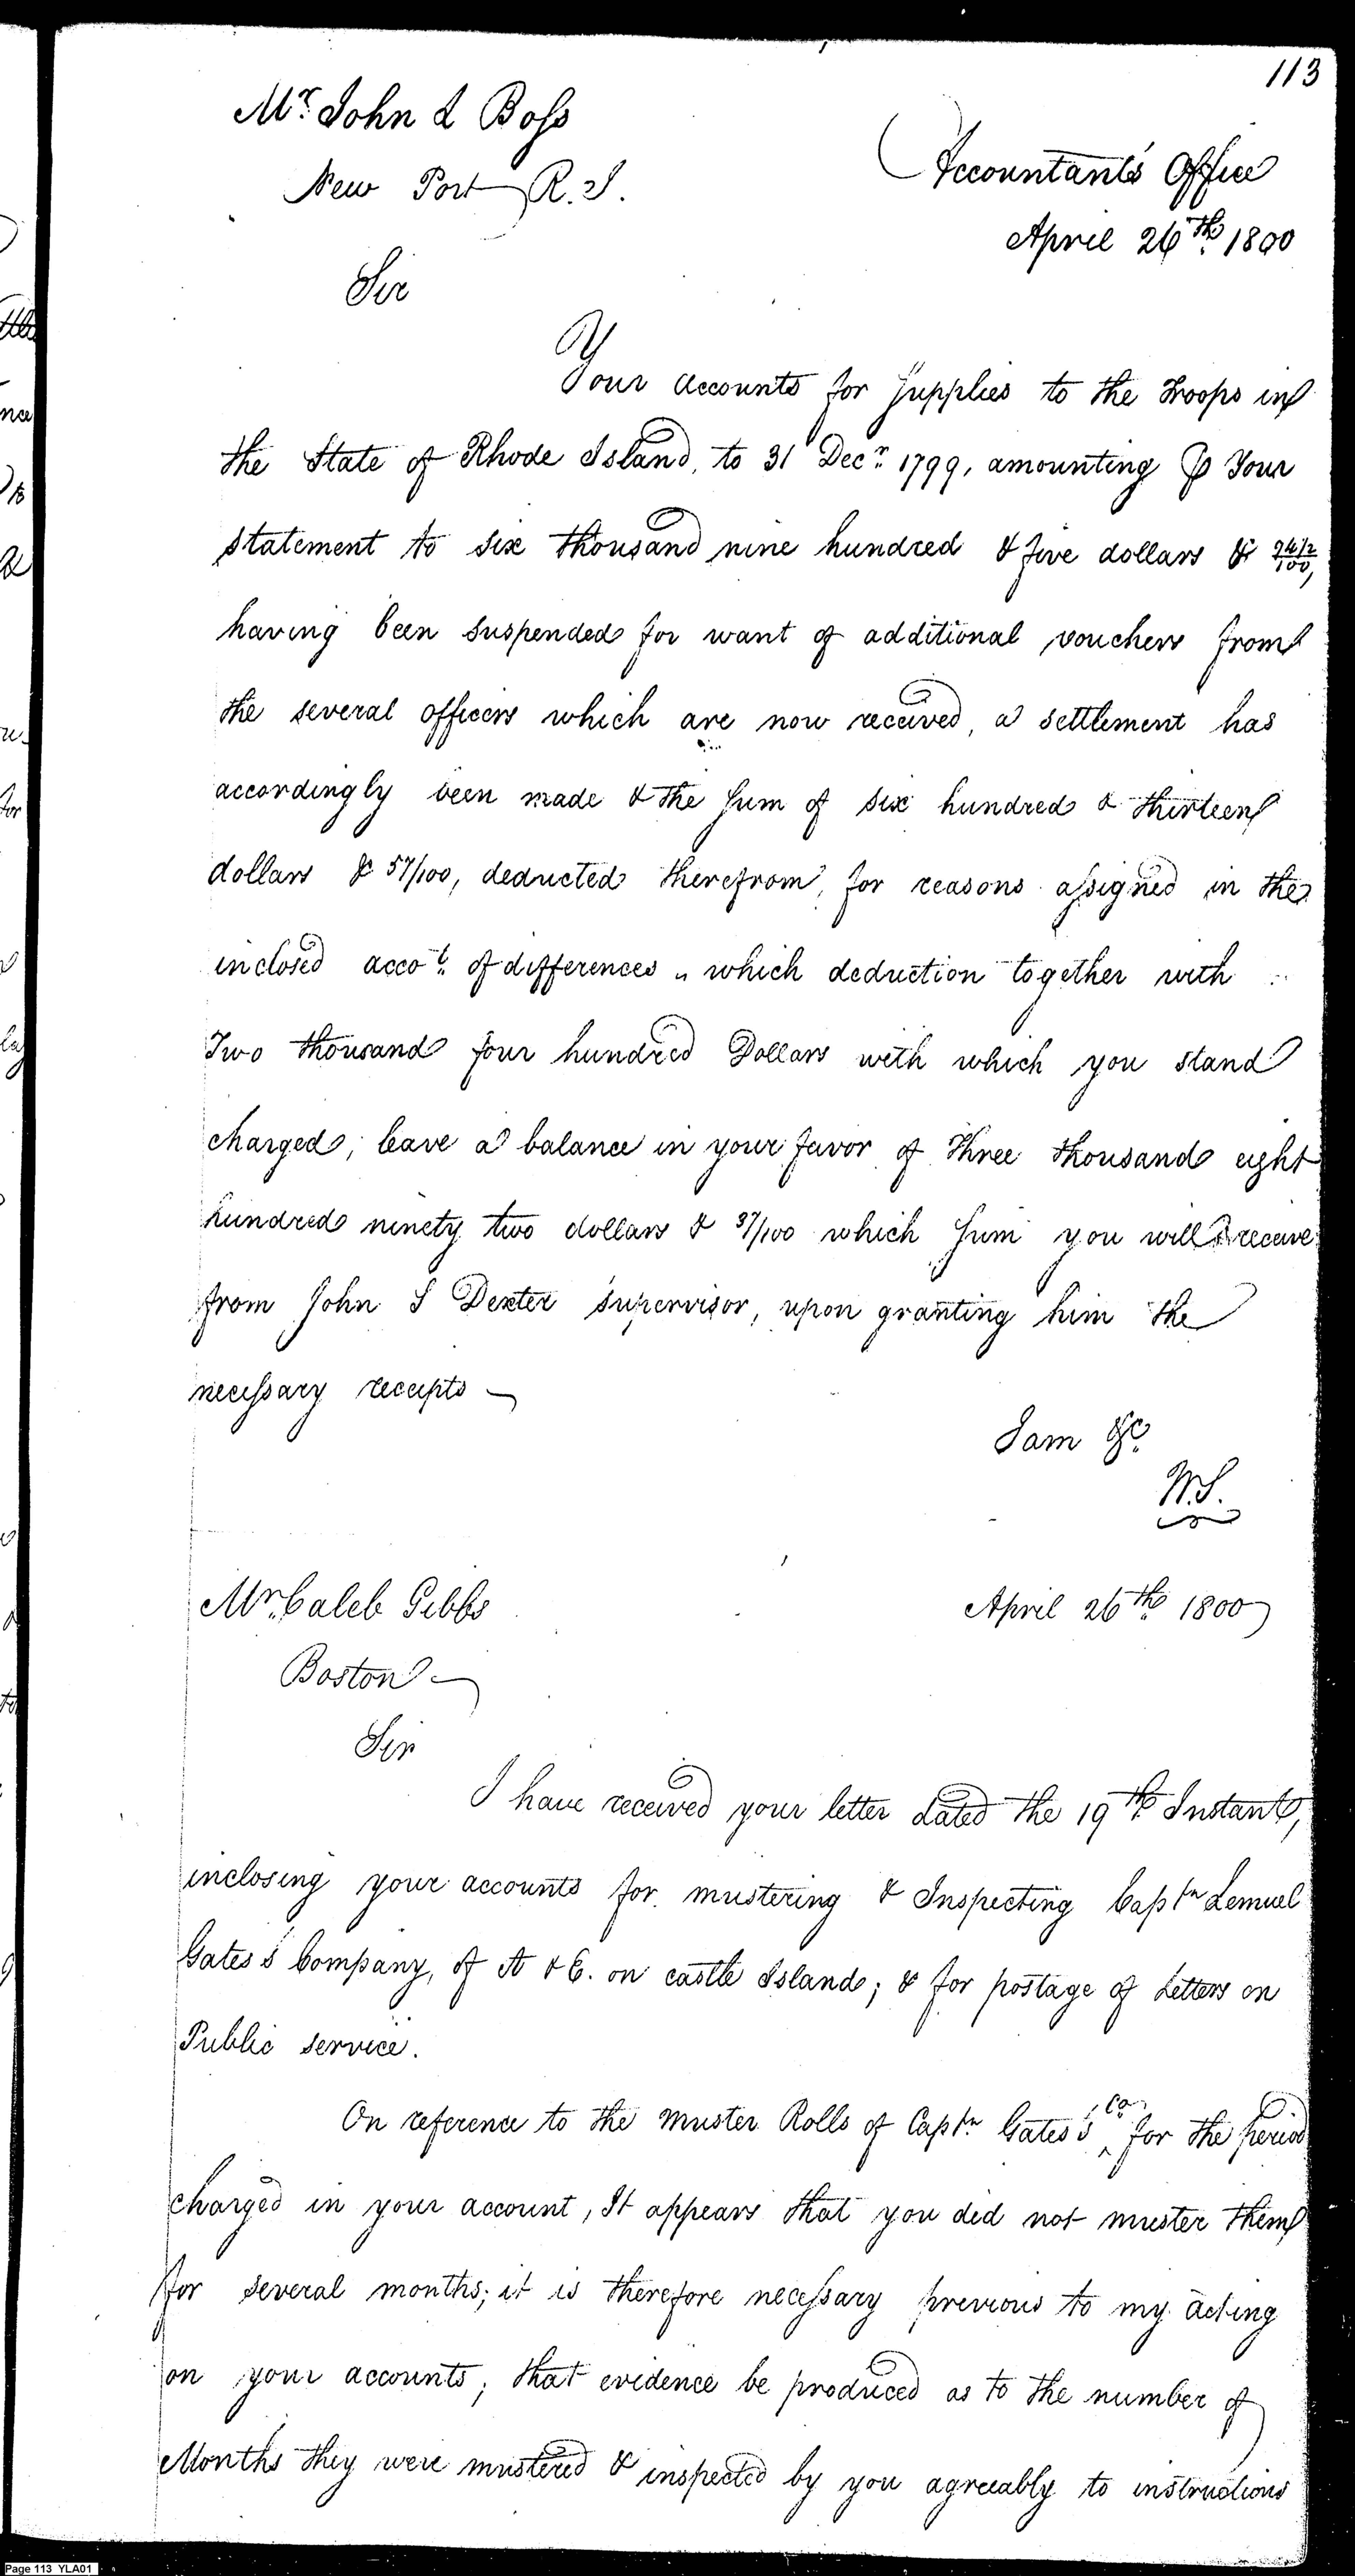 113
Mr. John L Boss
New Port R.I.
Accountants Office
April 26th. 1800
Sir
Your accounts for supplies to the Troops in
the State of Rhode Island, to 31 Decr. 1799, amounting ⅌ Your
statement to six thousand nine hundred & five dollars & 94½/100,
having been suspended for want of additional vouchers from
the several officers which are now received, a settlement has
accordingly been made & the sum of six hundred & thirteen
dollars & 57/100, deducted therefrom, for reasons assigned in the
inclosed accot. of differences, which deduction together with
Two thousand four hundred Dollars with which you stand
charged, leave a balance in your favor of Three thousand eight
hundred ninety two dollars & 37/100 which sum you will receive
from John S Dexter Supervisor, upon granting him the
necessary receipts
I am &c.
W.S.
Mr. Caleb Gibbs
April 26th. 1800
Boston
Sir
I have received your letter dated the 19th. Instant,
inclosing your accounts for mustering & Inspecting Captn Lemuel
Gates's Company, of A & E. on castle Island; & for postage of Letters on
Public service.
On reference to the Muster Rolls of Captn Gates's ^Co. for the period
charged in your account, It appears that you did not muster them
for several months; it is therefore necessary previous to my acting
on your accounts; that evidence be produced as to the number of
Months they were mustered & inspected by you agreeably to instructions
Page 113 YLA01